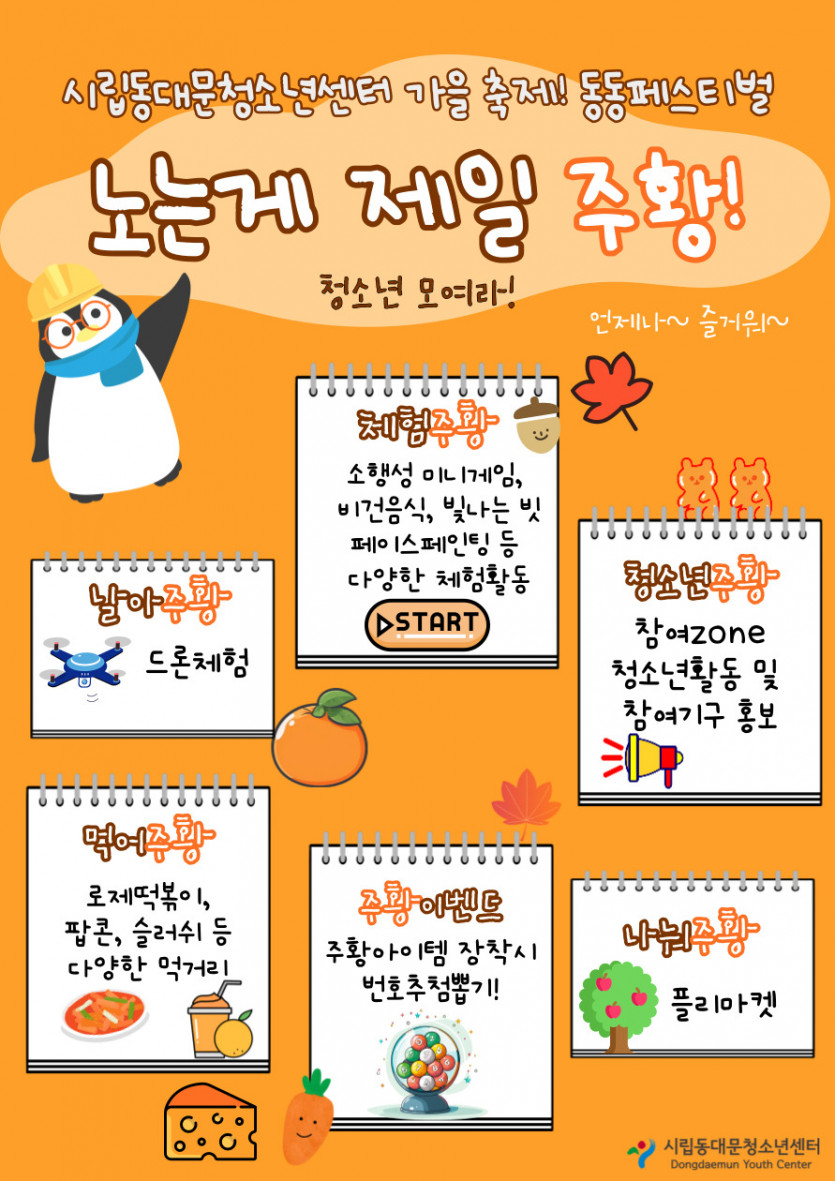 시립동대문청소년센터 가을 축제! 동동페스티벌
노는게 제일 주황!
청소년 모여라!
언제나~ 즐거워~
체험주황
소행성 미니게임,
비건음식, 빛나는 빗
페이스페인팅 등
다양한 체험활동
START
청소년주황
참여zone
청소년활동 및
참여기구 홍보
날아주황
드론체험
먹어주황
로제떡볶이,
팝콘, 슬러쉬 등
다양한 먹거리
주황이벤트
주황아이템 장착시
번호추첨뽑기!
나눠주황
플리마켓
시립동대문청소년센터
Dongdaemun Youth Center